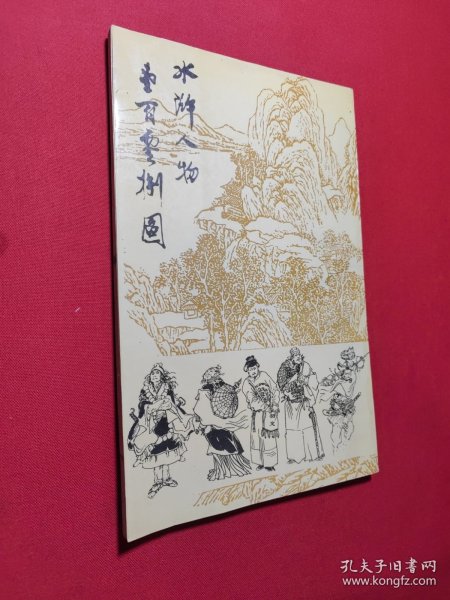 水浒人物
壹百零捌图
孔夫子旧书网
www.kongfz.com